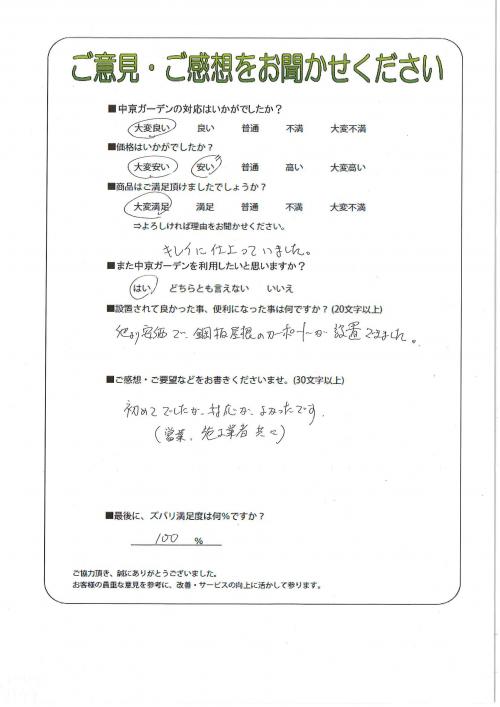 ご意見・ご感想をお聞かせください
■中京ガーデンの対応はいかがでしたか？
大変良い 良い 普通 不満 大変不満
■価格はいかがでしたか？
大変安い 安い 普通 高い 大変高い
■商品はご満足頂けましたでしょうか？
大変満足 満足 普通 不満 大変不満
⇒よろしければ理由をお聞かせください。
キレイに仕上っていました。
■また中京ガーデンを利用したいと思いますか？
はい どちらとも言えない いいえ
■設置されて良かった事、便利になった事は何ですか？(20文字以上)
他より安価で、鋼板屋根のカーポートが設置できました。
■ご感想・ご要望などをお書きくださいませ。(30文字以上)
初めてでしたが、対応がよかったです。
(営業、施工業者共々)
■最後に、ズバリ満足度は何％ですか？
100 ％
ご協力頂き、誠にありがとうございました。
お客様の貴重な意見を参考に、改善・サービスの向上に活かして参ります。